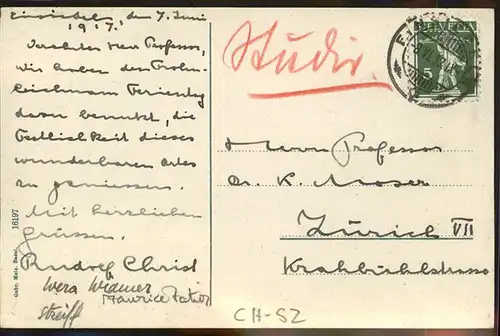 Einsiedeln, den 7. Juni
1917.
Verehrter Herr Professor,
Wir haben den Frohn-
leichnam Ferientag
davon benutzt, die
Festlichkeit dieses
wunderbaren Ortes
zu geniessen.
Mit herzlichen
Grüssen.
Rudolf Christ
Wera Widmer
Maurice
Streiff
Gebr. Metz, Basel
16197
Studer
HELVETIA
5
Herrn Professor
Dr. K. Moser
Zürich VII
Krähbühlstrasse
CH-SZ